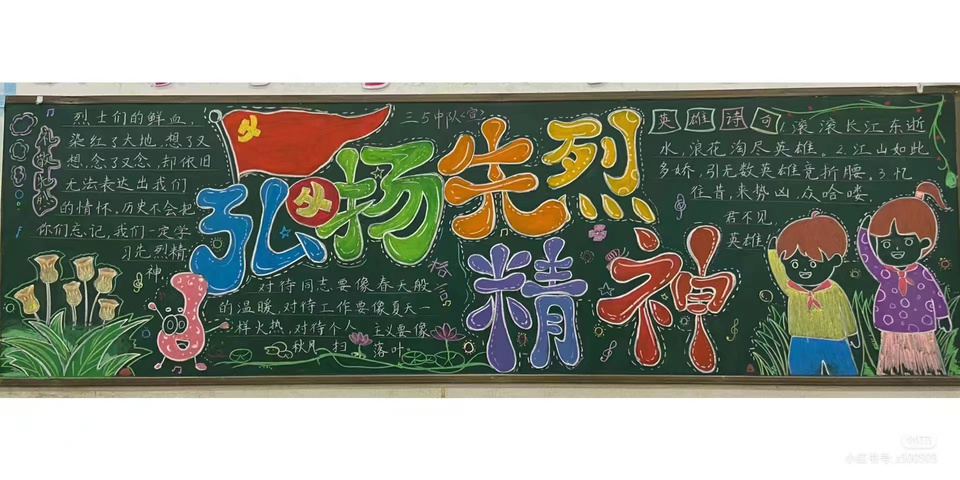 三5中队(宣)
弘扬先烈
精神
烈士们的鲜血,
染红了大地,想了又
想,念了又念,却依旧
无法表达出我们
的情怀,历史不会把
你们忘记,我们一定学
习先烈精
神。
对待同志要像春天般
的温暖,对待工作要像夏天
一样火热,对待个人主义要像
秋风扫落叶。
格言
英雄诗句
1.滚滚长江东逝
水,浪花淘尽英雄。2.江山如此
多娇,引无数英雄竞折腰。3.忆
往昔,来势凶众哈喽
君不见,
英雄
小红书
小红书号: